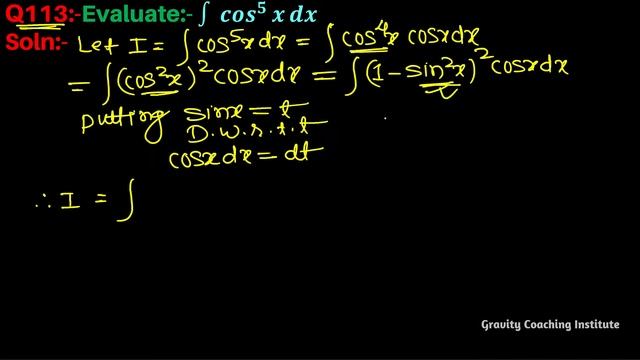 Q113:-Evaluate:- ∫ cos⁵ x dx
Soln:- Let I = ∫cos⁵x dx = ∫cos⁴x cosx dx
= ∫(cos²x)² cosx dx = ∫(1 - sin²x)² cosx dx
putting sinx = t
D.w.r.t.t
cosx dx = dt
∴ I = ∫
Gravity Coaching Institute